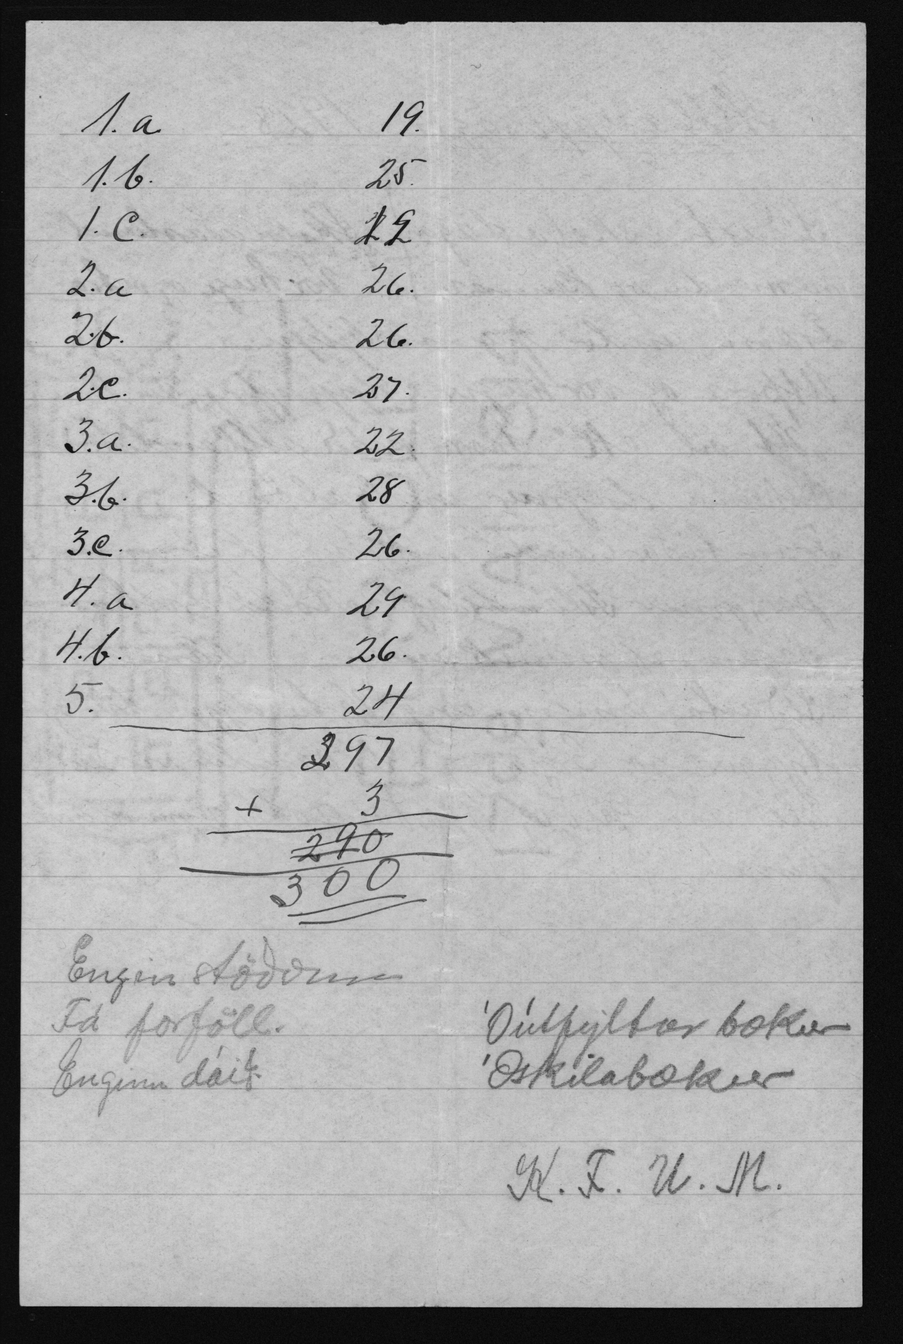 1. a 19.
1. b. 25.
1. C. 19
2. a 26.
2.b. 26.
2.c. 27.
3.a. 22.
3.b. 28
3.c. 26.
4. a 29
4.b. 26.
5. 24
297
+ 3
290
300
Engin
Fá forföll.
Enginn dáið.
Óútfyltar bækur
Óskilabækur
K. F. U. M.